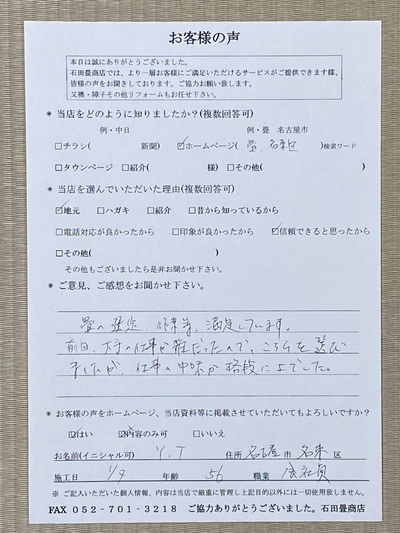 お客様の声
本日は誠にありがとうございました。
石田畳商店では、より一層お客様にご満足いただけるサービスがご提供できます様、
皆様の声をお聞きしております。ご協力お願い致します。
又襖・障子その他リフォームもお任せ下さい。
* 当店をどのように知りましたか？(複数回答可)
例・中日 例・畳 名古屋市
□チラシ( 新聞) ☑ホームページ( 畳、名東区 )検索ワード
□タウンページ □紹介( 様) □その他( )
* 当店を選んでいただいた理由(複数回答可)
☑地元 □ハガキ □紹介 □昔から知っているから
□電話対応が良かったから □印象が良かったから ☑信頼できると思ったから
□その他( )
その他もございましたら是非お聞かせ下さい。
* ご意見、ご感想をお聞かせ下さい。
畳の選定、作業等、満足しています。
前回、大手の仕事が雑だったので、こちらを選び
ましたが、仕事の中味が格段に上でした。
* お客様の声をホームページ、当店資料等に掲載させていただいてもよろしいですか？
☑はい ☑内容のみ可 □いいえ
お名前(イニシャル可) Y.T 住所 名古屋 市 名東 区
施工日 1/9 年齢 56 職業 会社員
※ ご記入いただいた個人情報、内容は当店で厳重に管理し上記目的以外には一切使用致しません。
FAX 052-701-3218 ご協力ありがとうございました。石田畳商店